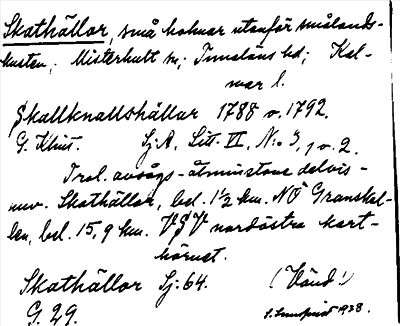 Skathällor, små holmar utanför smålands-
kusten; Misterhult sn; Tunaläns hd; Kal-
mar l.
Skallknallshällar 1788 o. 1792.
G. Klint. Sj. A, Litt. VI, N:o 3, 1 o. 2.
Trol. avsågs åtminstone delvis
nuv. Skathällor, bel. 1½ km. NO Granskal-
len, bel. 15,9 km. VSV nordöstra kart-
hörnet.
Skathällor Sj: 64. (Vänd!)
G. 29. 1938.